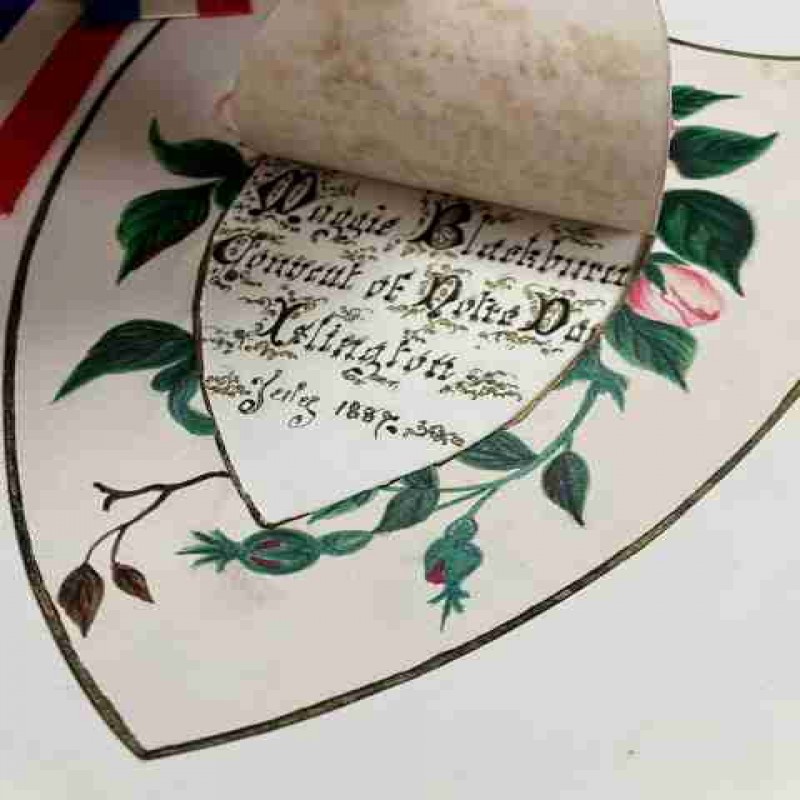 Maggie Blackburn
Convent of Notre Da
Islington
July 1887.